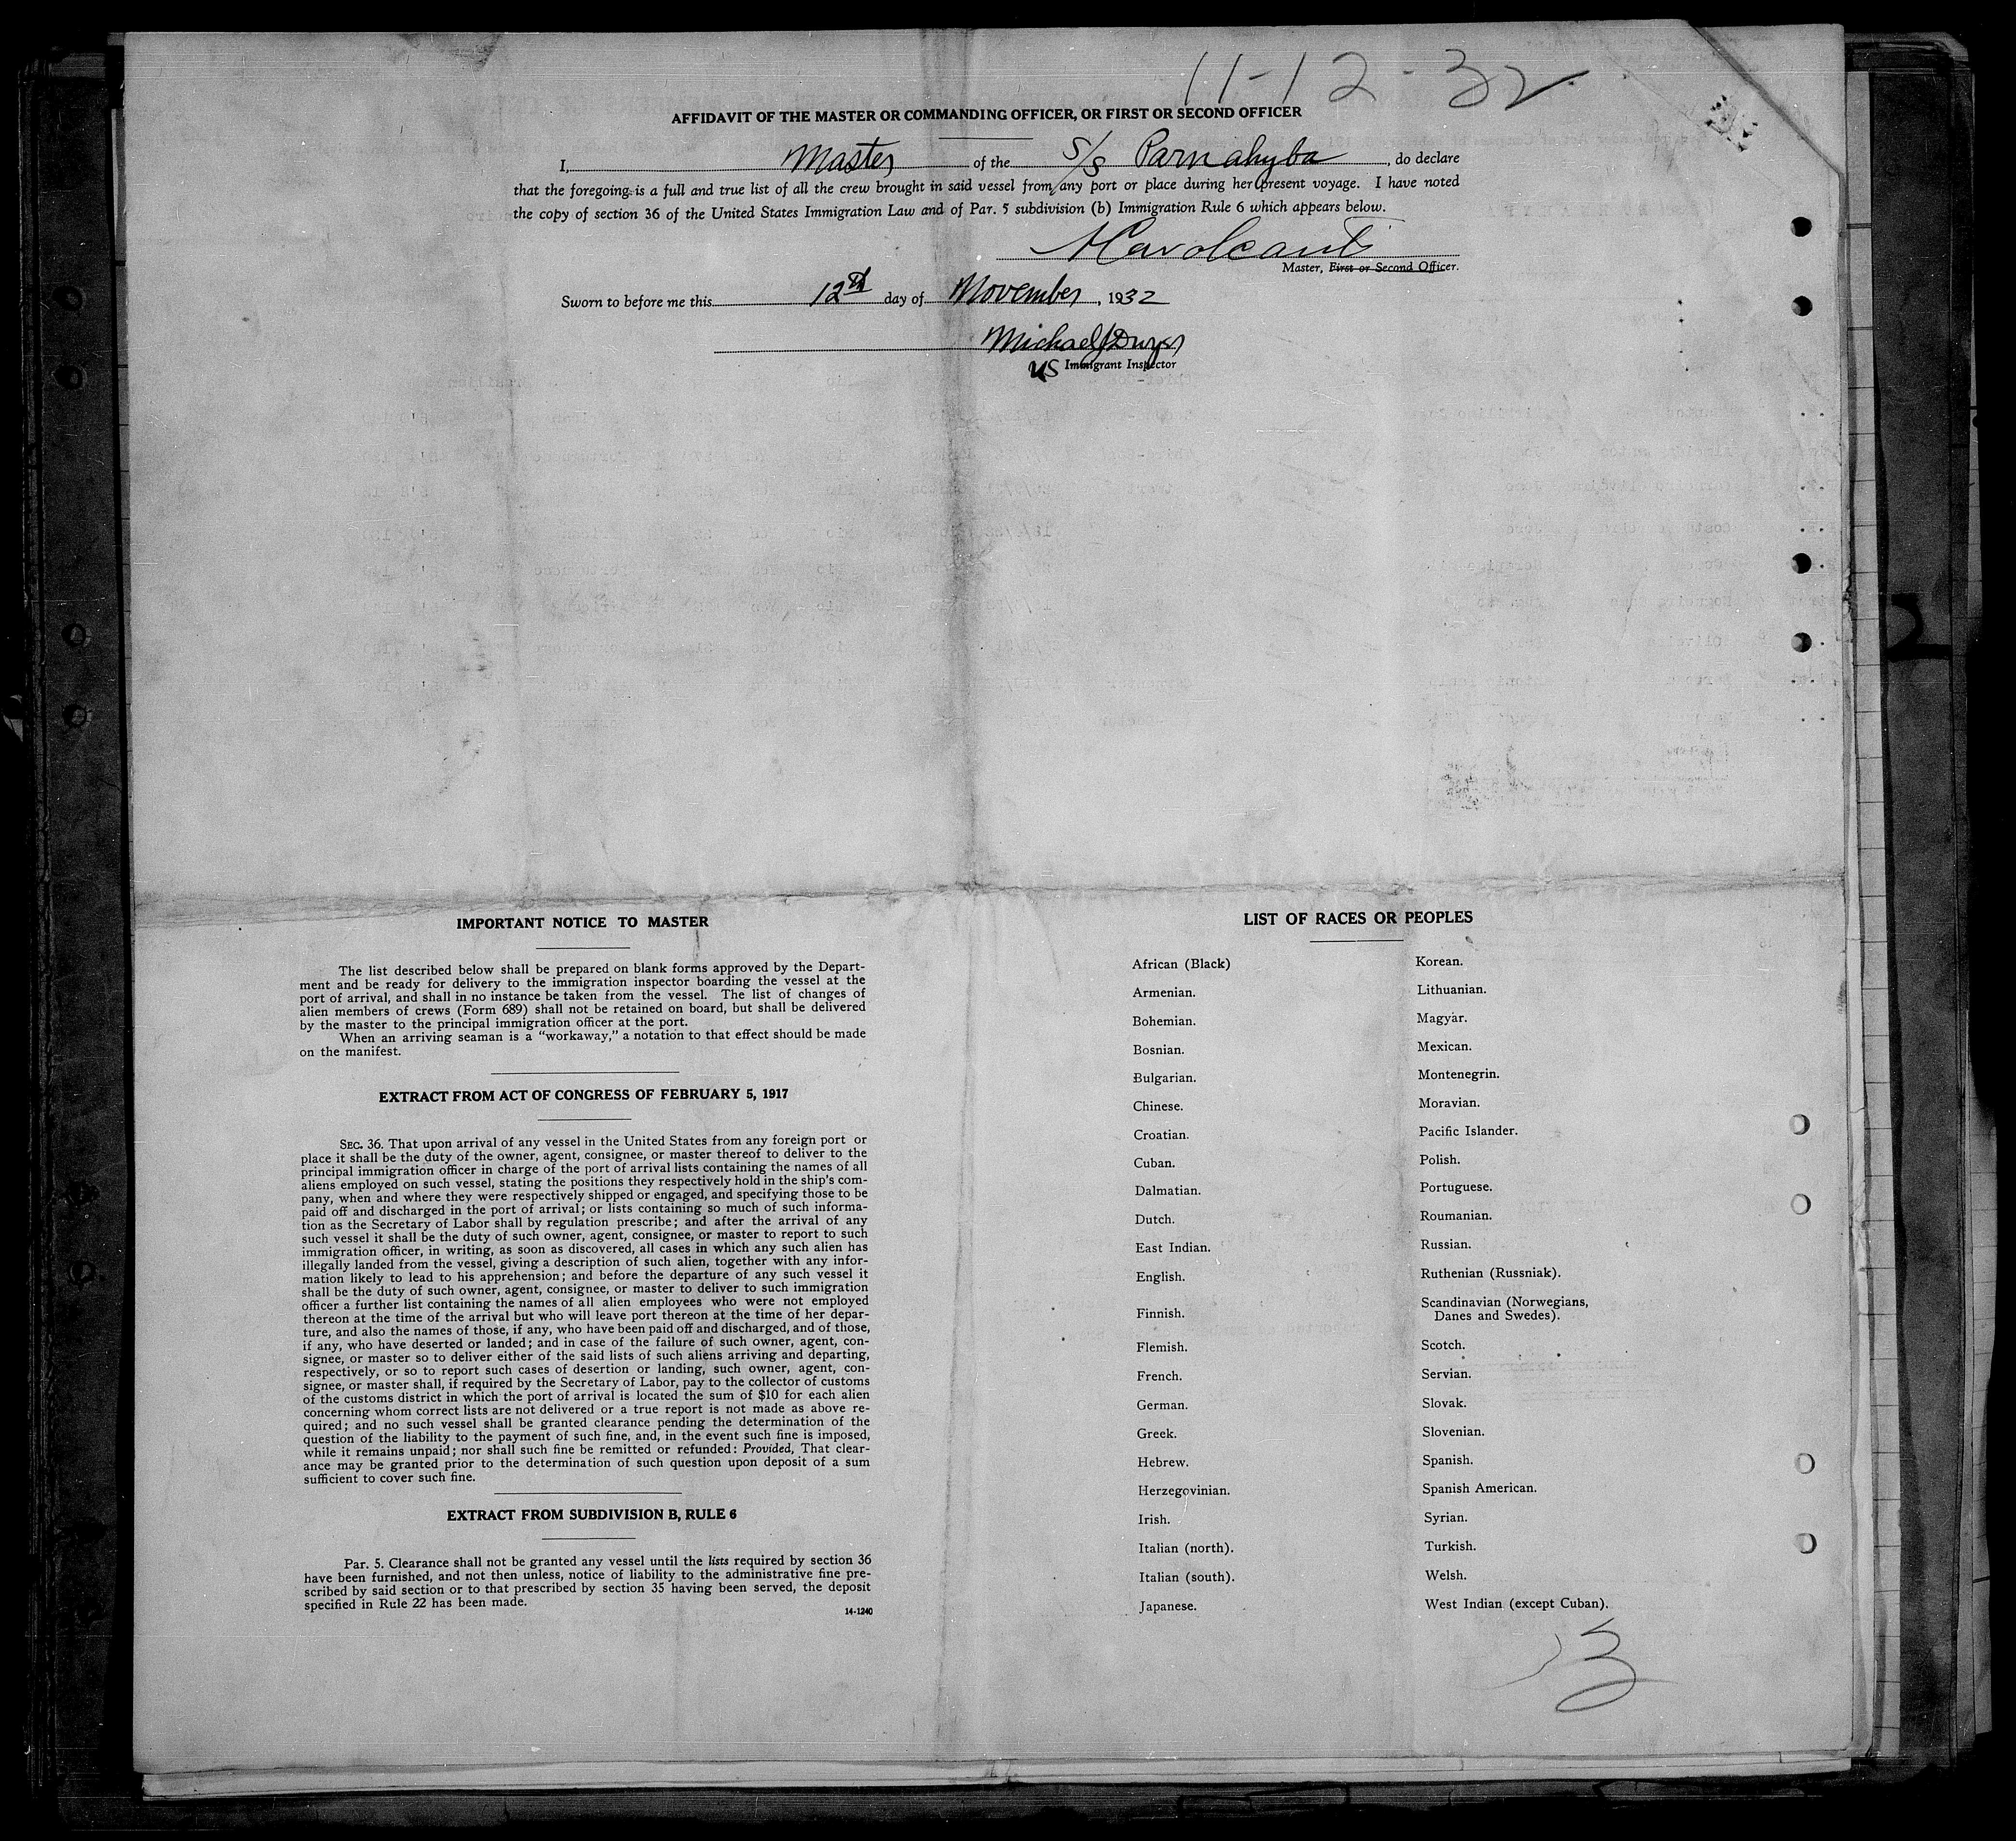 11-12-32
AFFIDAVIT OF THE MASTER OR COMMANDING OFFICER, OR FIRST OR SECOND OFFICER
I, Master of the S/S Parnahyba, do declare
that the foregoing is a full and true list of all the crew brought in said vessel from any port or place during her present voyage. I have noted
the copy of section 36 of the United States Immigration Law and of Par. 5 subdivision (b) Immigration Rule 6 which appears below.
Master, First or Second Officer.
Sworn to before me this 12th day of November, 1932
Michael J Dwyer
US Immigrant Inspector
IMPORTANT NOTICE TO MASTER
The list described below shall be prepared on blank forms approved by the Depart-
ment and be ready for delivery to the immigration inspector boarding the vessel at the
port of arrival, and shall in no instance be taken from the vessel. The list of changes of
alien members of crews (Form 689) shall not be retained on board, but shall be delivered
by the master to the principal immigration officer at the port.
When an arriving seaman is a “workaway,” a notation to that effect should be made
on the manifest.
EXTRACT FROM ACT OF CONGRESS OF FEBRUARY 5, 1917
SEC. 36. That upon arrival of any vessel in the United States from any foreign port or
place it shall be the duty of the owner, agent, consignee, or master thereof to deliver to the
principal immigration officer in charge of the port of arrival lists containing the names of all
aliens employed on such vessel, stating the positions they respectively hold in the ship's com-
pany, when and where they were respectively shipped or engaged, and specifying those to be
paid off and discharged in the port of arrival; or lists containing so much of such informa-
tion as the Secretary of Labor shall by regulation prescribe; and after the arrival of any
such vessel it shall be the duty of such owner, agent, consignee, or master to report to such
immigration officer, in writing, as soon as discovered, all cases in which any such alien has
illegally landed from the vessel, giving a description of such alien, together with any infor-
mation likely to lead to his apprehension; and before the departure of any such vessel it
shall be the duty of such owner, agent, consignee, or master to deliver to such immigration
officer a further list containing the names of all alien employees who were not employed
thereon at the time of the arrival but who will leave port thereon at the time of her depar-
ture, and also the names of those, if any, who have been paid off and discharged, and of those,
if any, who have deserted or landed; and in case of the failure of such owner, agent, con-
signee, or master so to deliver either of the said lists of such aliens arriving and departing,
respectively, or so to report such cases of desertion or landing, such owner, agent, con-
signee, or master shall, if required by the Secretary of Labor, pay to the collector of customs
of the customs district in which the port of arrival is located the sum of $10 for each alien
concerning whom correct lists are not delivered or a true report is not made as above re-
quired; and no such vessel shall be granted clearance pending the determination of the
question of the liability to the payment of such fine, and, in the event such fine is imposed,
while it remains unpaid; nor shall such fine be remitted or refunded: Provided, That clear-
ance may be granted prior to the determination of such question upon deposit of a sum
sufficient to cover such fine.
EXTRACT FROM SUBDIVISION B, RULE 6
Par. 5. Clearance shall not be granted any vessel until the lists required by section 36
have been furnished, and not then unless, notice of liability to the administrative fine pre-
scribed by said section or to that prescribed by section 35 having been served, the deposit
specified in Rule 22 has been made.
14-1240
LIST OF RACES OR PEOPLES
African (Black)
Armenian.
Bohemian.
Bosnian.
Bulgarian.
Chinese.
Croatian.
Cuban.
Dalmatian.
Dutch.
East Indian.
English.
Finnish.
Flemish.
French.
German.
Greek.
Hebrew.
Herzegovinian.
Irish.
Italian (north).
Italian (south).
Japanese.
Korean.
Lithuanian.
Magyar.
Mexican.
Montenegrin.
Moravian.
Pacific Islander.
Polish.
Portuguese.
Roumanian.
Russian.
Ruthenian (Russniak).
Scandinavian (Norwegians,
Danes and Swedes).
Scotch.
Servian.
Slovak.
Slovenian.
Spanish.
Spanish American.
Syrian.
Turkish.
Welsh.
West Indian (except Cuban).